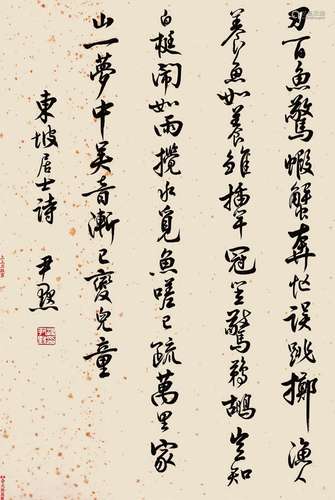 刃百魚驚蝦蟹奔忙誤跳擲漁人
養魚如養雛插竿冠笠驚鵜鶘豈知
白梃鬧如雨攪水覓魚嗟已疏萬里家
山一夢中吳音漸已變兒童
東坡居士詩 尹默